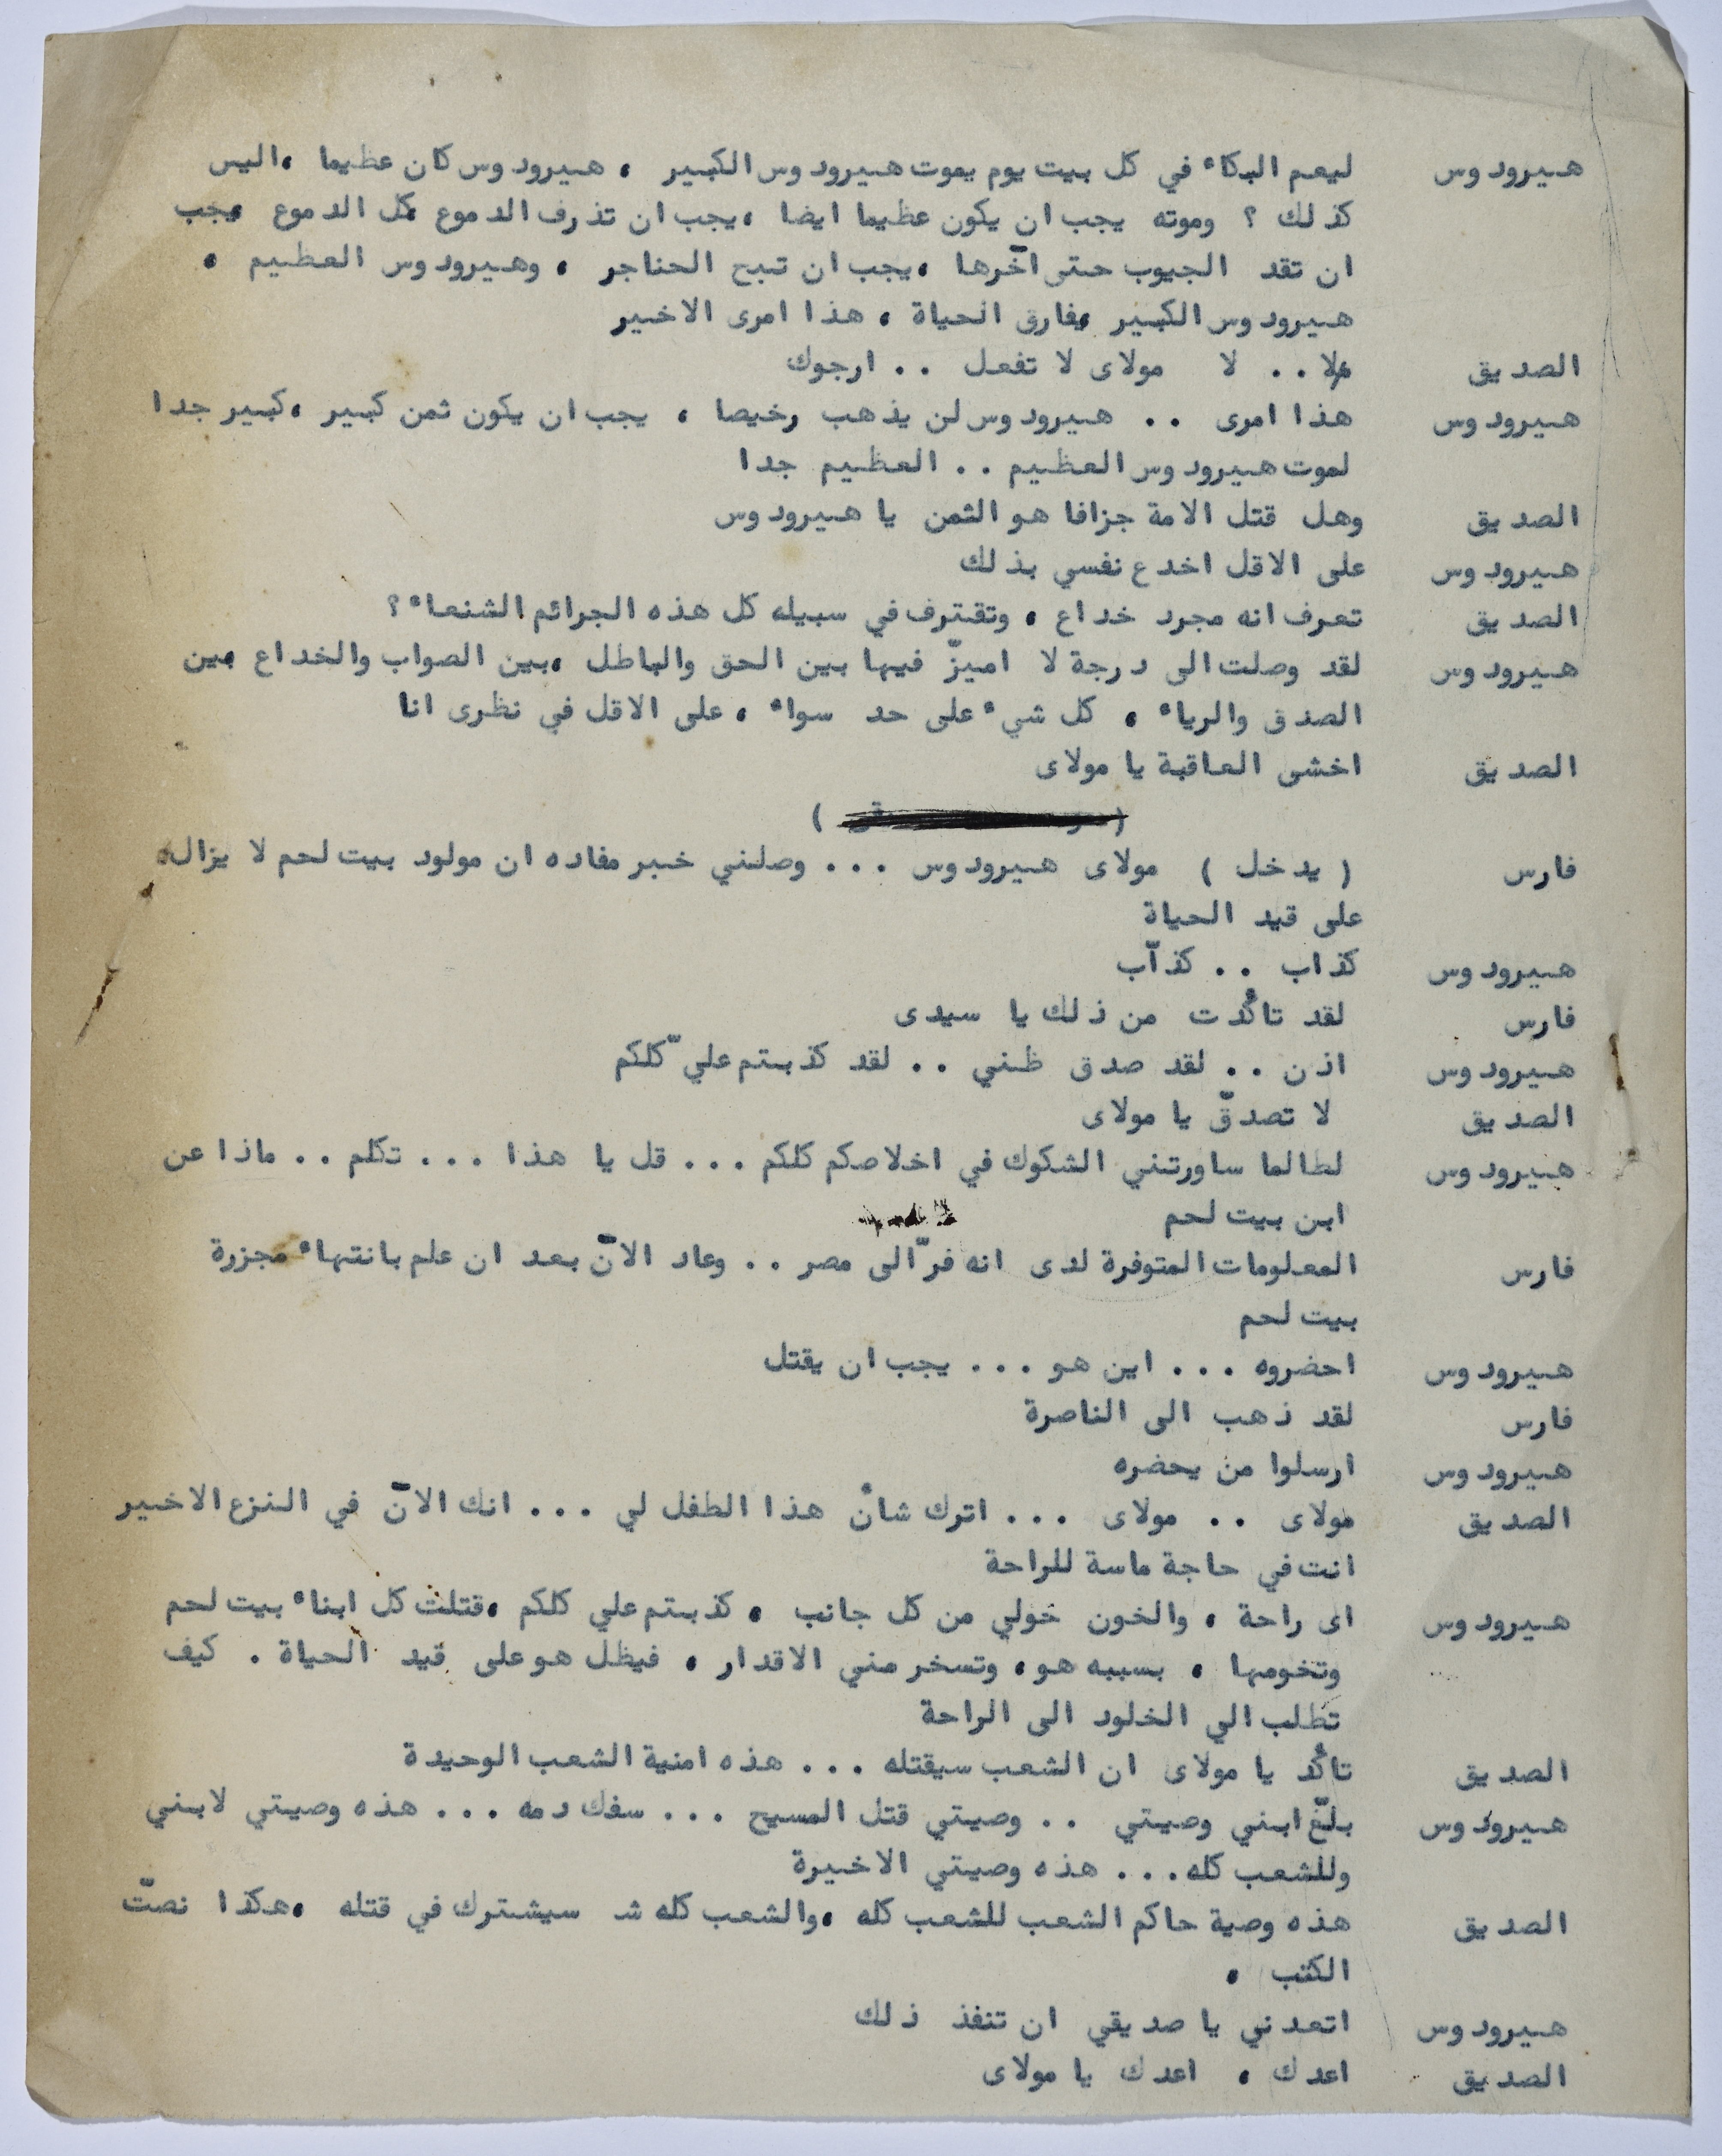 هيرودوس ليعم البكاء في كل بيت يوم يموت هيرودوس الكبير ، هيرودوس كان عظيما ،اليس
كذلك ؟ وموته يجب ان يكون عظيما ايضا ،يجب ان تذرف الدموع ،كل الدموع ،يجب
ان تقد الجيوب حتى آخرها ،يجب ان تبح الحناجر ، وهيرودوس العظيم ،
هيرودوس الكبير ،يفارق الحياة ، هذا امرى الاخير
الصديق لا .. لا مولاى لا تفعل .. ارجوك
هيرودوس هذا امرى .. هيرودوس لن يذهب رخيصا ، يجب ان يكون ثمن كبير ،كبير جدا
لموت هيرودوس العظيم .. العظيم جدا
الصديق وهل قتل الامة جزافا هو الثمن يا هيرودوس
هيرودوس على الاقل اخدع نفسي بذلك
الصديق تعرف انه مجرد خداع ، وتقترف في سبيله كل هذه الجرائم الشنعاء ؟
هيرودوس لقد وصلت الى درجة لا اميزّ فيها بين الحق والباطل ،بين الصواب والخداع ،بين
الصدق والرياء ، كل شيء على حد سواء ، على الاقل في نظرى انا
الصديق اخشى العاقبة يا مولاى
( )
فارس ( يدخل ) مولاى هيرودوس ... وصلني خبر مفاده ان مولود بيت لحم لا يزال
على قيد الحياة
هيرودوس كذاب .. كذآب
فارس لقد تأكدت من ذلك يا سيدى
هيرودوس اذن .. لقد صدق ظني .. لقد كذبتم عليّ كلكم
الصديق لا تصدقّ يا مولاى
هيرودوس لطالما ساورتني الشكوك في اخلاصكم كلكم ... قل يا هذا ... تكلم .. ماذا عن
ابن بيت لحم
فارس المعلومات المتوفرة لدى انه فرّ الى مصر .. وعاد الآن بعد ان علم بانتهاء مجزرة
بيت لحم
هيرودوس احضروه ... اين هو ... يجب ان يقتل
فارس لقد ذهب الى الناصرة
هيرودوس ارسلوا من يحضره
الصديق مولاى .. مولاى ... اترك شأن هذا الطفل لي ... انك الآن في النزع الاخير
انت في حاجة ماسة للراحة
هيرودوس اى راحة ، والخون حولي من كل جانب ، كذبتم علي كلكم ،قتلت كل ابناء بيت لحم
وتخومها ، بسببه هو، وتسخر مني الاقدار ، فيظل هو على قيد الحياة . كيف
تطلب الي الخلود الى الراحة
الصديق تأكد يا مولاى ان الشعب سيقتله ... هذه امنية الشعب الوحيدة
هيرودوس بلّغ ابني وصيتي .. وصيتي قتل المسيح ... سفك دمه ... هذه وصيتي لابني
وللشعب كله... هذه وصيتي الاخيرة
الصديق هذه وصية حاكم الشعب للشعب كله ،والشعب كله شـ سيشترك في قتله ،هكذا نصتّ
الكتب ،
هيرودوس اتعدني يا صديقي ان تنفذ ذلك
الصديق اعدك ، اعدك يا مولاى